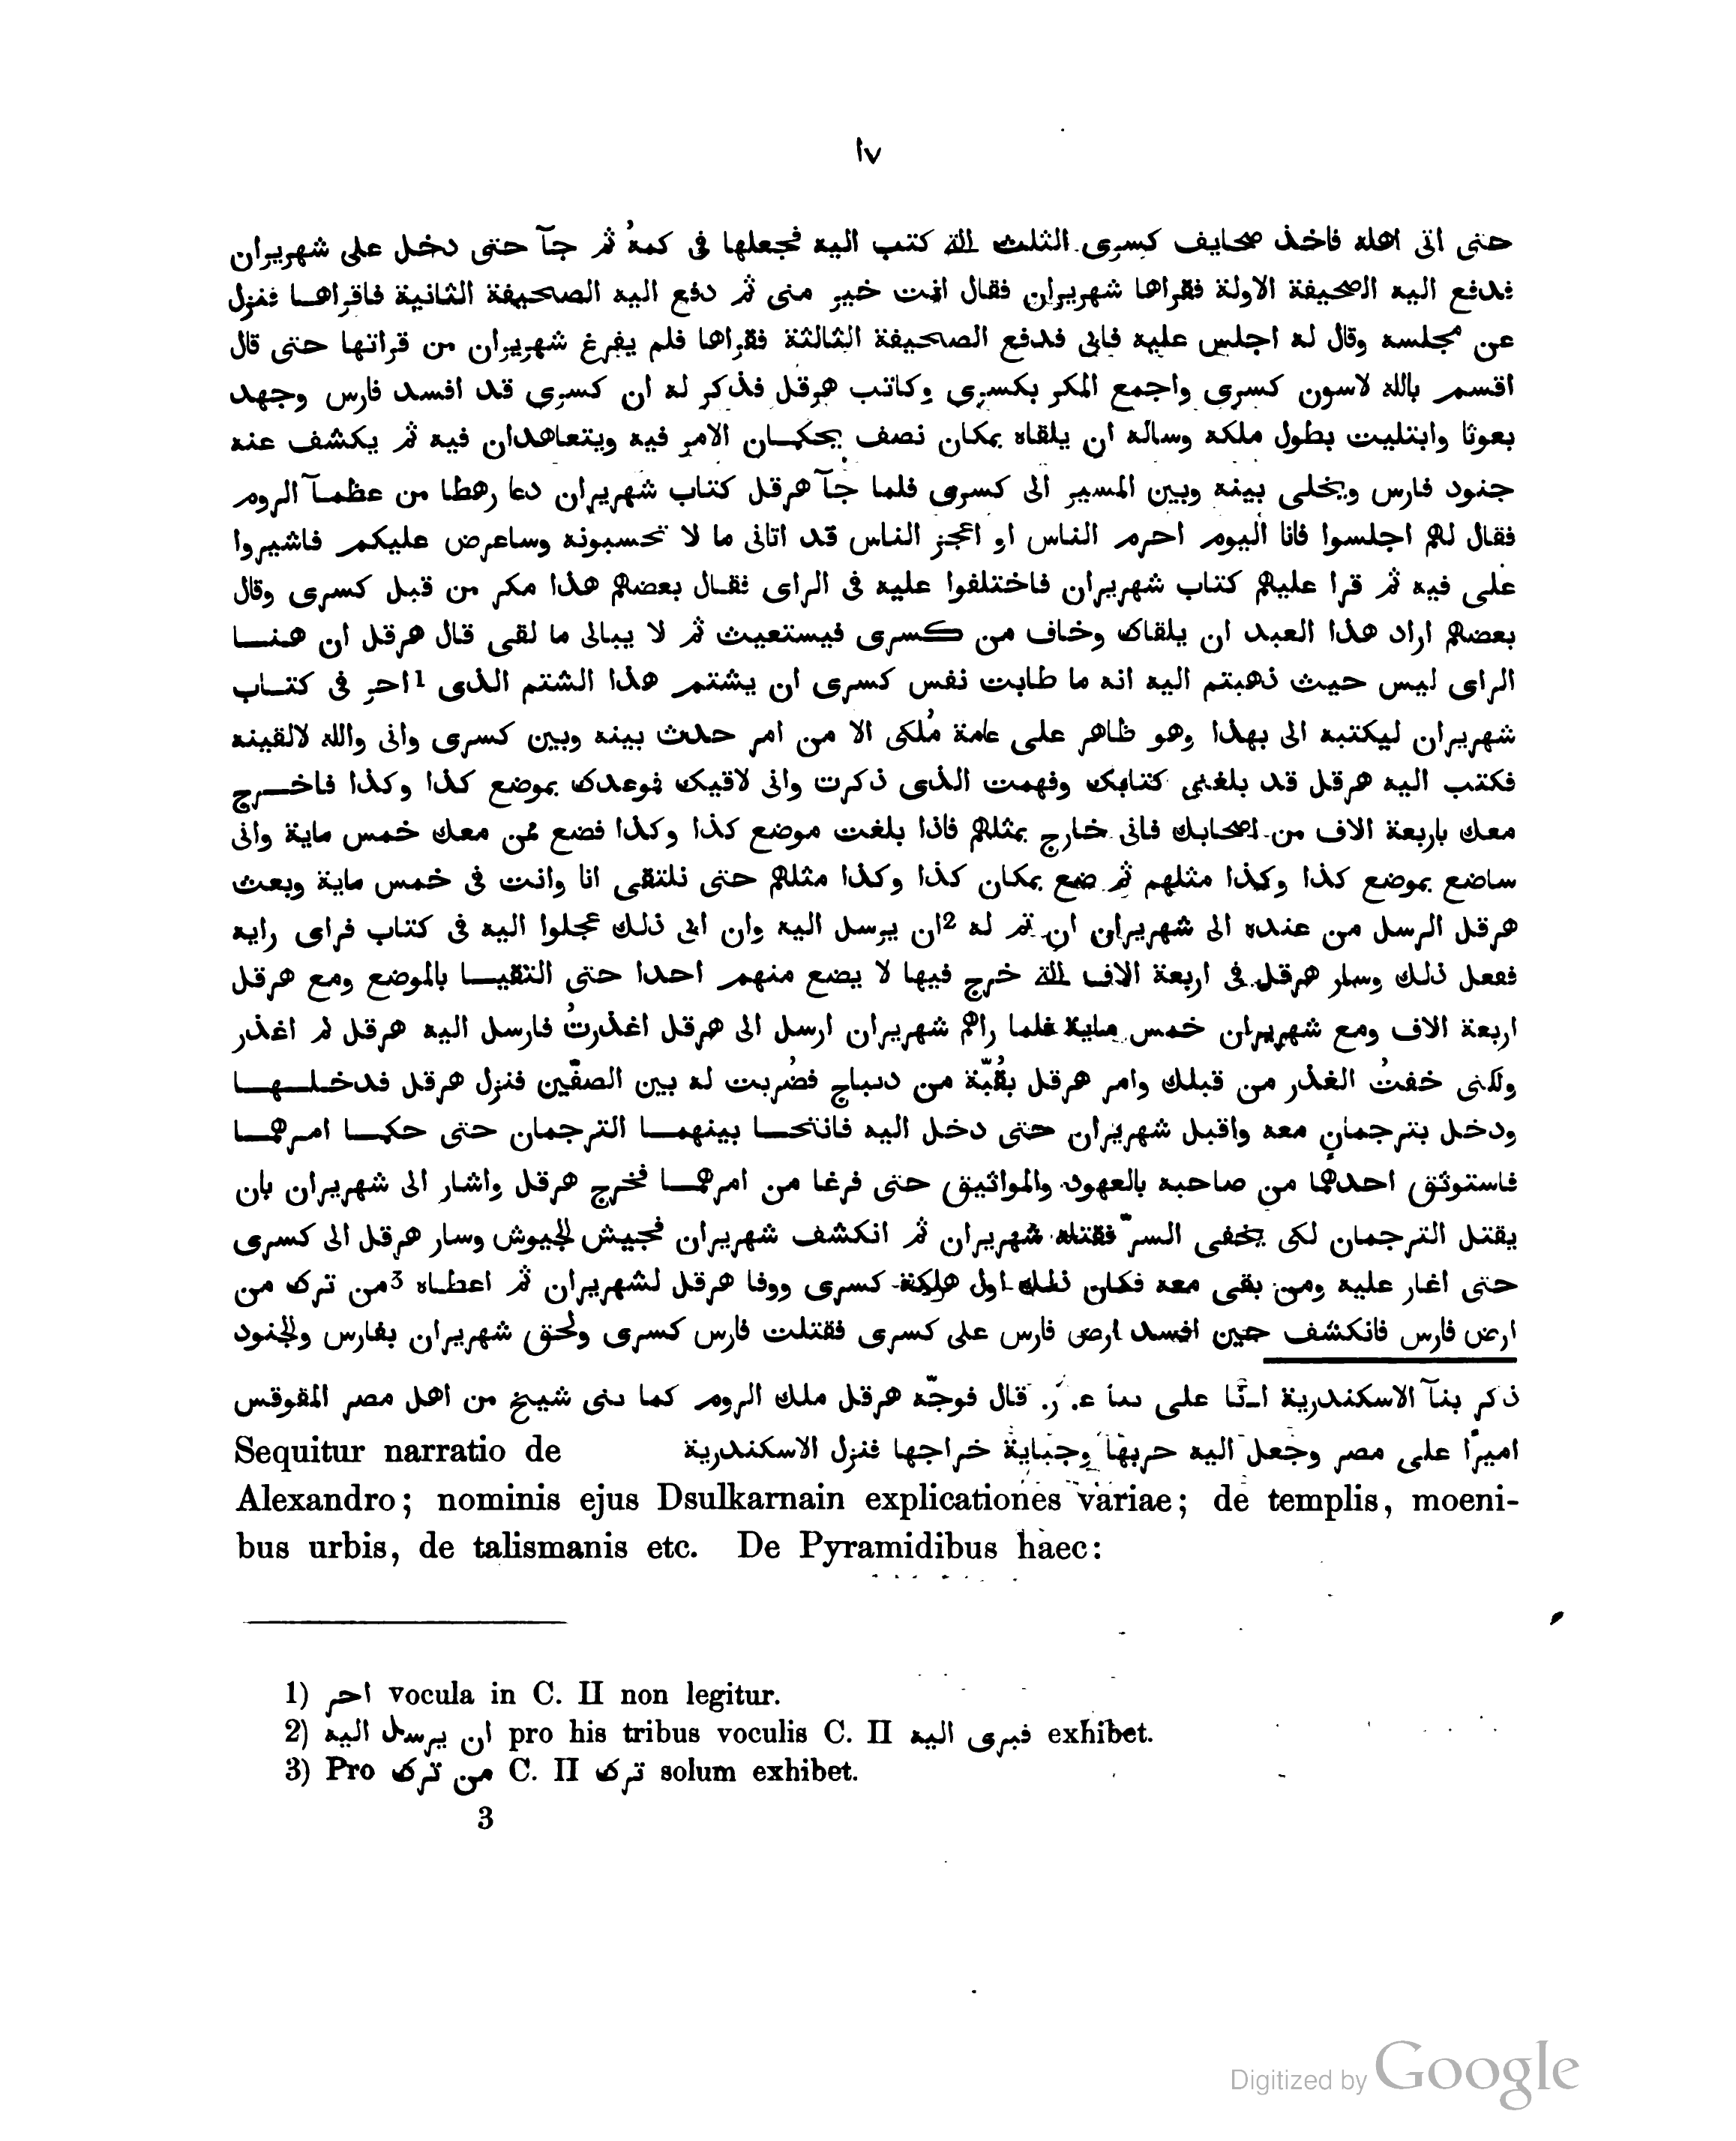 ١٧
حتى اتى اهله فاخذ صحايف كسرى الثلث التى كتب اليه فجعلها فى كمهُ ثم جآ حتى دخل على شهريران
فدفع اليه الصحيفة الاولة فقراها شهريران فقال انت خير منى ثم دفع اليه الصحيفة الثانية فاقراهـا فنزل
عن مجلسه وقال له اجلس عليه فابى فدفع الصحيفة الثالثة فقراها فلم يفرغ شهريران من قراتها حتى قال
اقسم بالله لاسون كسرى واجمع المكر بكسرى وكاتب هرقل فذكر له ان كسرى قد افسد فارس وجهد
بعوثا وابتليت بطول ملكه وساله ان يلقاه بمكان نصف يحكمـان الامر فيه ويتعاهدان فيه ثم يكشف عنه
جنود فارس ويخلى بينه وبين المسير الى كسرى فلما جآ هرقل كتاب شهريران دعا رهطا من عظمـآ الروم
فقال لهم اجلسوا فانا اليوم احرم الناس او اعجز الناس قد اتانى ما لا تحسبونه وساعرض عليكم فاشيروا
على فيه ثم قرا عليهم كتاب شهريران فاختلفوا عليه فى الراى فقـال بعضهم هذا مكر من قبل كسرى وقال
بعضهم اراد هذا العبد ان يلقاك وخاف من كسرى فيستعيث ثم لا يبالى ما لقى قال هرقل ان هـنـا
الراى ليس حيث ذهبتم اليه انه ما طابت نفس كسرى ان يشتم هذا الشتم الذى 1احر فى كتـاب
شهريران ليكتبه الى بهذا وهو ظاهر على عامة مُلكى الا من امر حدث بينه وبين كسرى وانى والله لالقينه
فكتب اليه هرقل قد بلغنى كتابك وفهمت الذى ذكرت وانى لاقيك فوعدك بموضع كذا وكذا فاخـرج
معك باربعة الاف من اصحابك فانى خارج بمثلهم فاذا بلغت موضع كذا وكذا فضع ممن معك خمس ماية وانى
ساضع بموضع كذا وكذا مثلهم ثم ضع بمكان كذا وكذا مثلهم حتى نلتقى انا وانت فى خمس ماية وبعث
هرقل الرسل من عنده الى شهريران ان تم له 2ان يرسل اليه وان ابى ذلك عجلوا اليه فى كتاب فراى رايه
ففعل ذلك وسار هرقل فى اربعة الاف التى خرج فيها لا يضع منهم احدا حتى التقيـا بالموضع ومع هرقل
اربعة الاف ومع شهريران خمس ماية فلما راهم شهريران ارسل الى هرقل اغذرتُ فارسل اليه هرقل لم اغذر
ولكنى خفتُ الغذر من قبلك وامر هرقل بقُبّة من ديباج فضُربت له بين الصفّين فنزل هرقل فدخـلـهـا
ودخل بترجمان معه واقبل شهريران حتى دخل اليه فانتحـا بينهمـا الترجمان حتى حكمـا امرهمـا
فاستوثق احدهما من صاحبه بالعهود والمواثيق حتى فرغا من امرهمـا فخرج هرقل واشار الى شهريران بان
يقتل الترجمان لكى يخفى السرّ فقتله شهريران ثم انكشف شهريران فجيش الجيوش وسار هرقل الى كسرى
حتى اغار عليه ومن بقى معه فكان ذلك اول هلكة كسرى ووفا هرقل لشهريران ثم اعطـاه 3من ترك من
ارض فارس فانكشف حين افسد ارض فارس على كسرى فقتلت فارس كسرى ولحق شهريران بفارس والجنود
ذكر بنآ الاسكندرية على قال فوجّه هرقل ملك الروم كما بنى شيخ من اهل مصر المقوقس
اميرًا على مصر وجعل اليه حربها وجباية خراجها فنزل الاسكندرية Sequitur narratio de
Alexandro; nominis ejus Dsulkarnain explicationes variae; de templis, moeni-
bus urbis, de talismanis etc. De Pyramidibus haec:
1) احر vocula in C. II non legitur.
2) ان يرسل اليه pro his tribus voculis C. II فبرى اليه exhibet.
3) Pro من ترك C. II ترك solum exhibet.
3
Digitized by Google